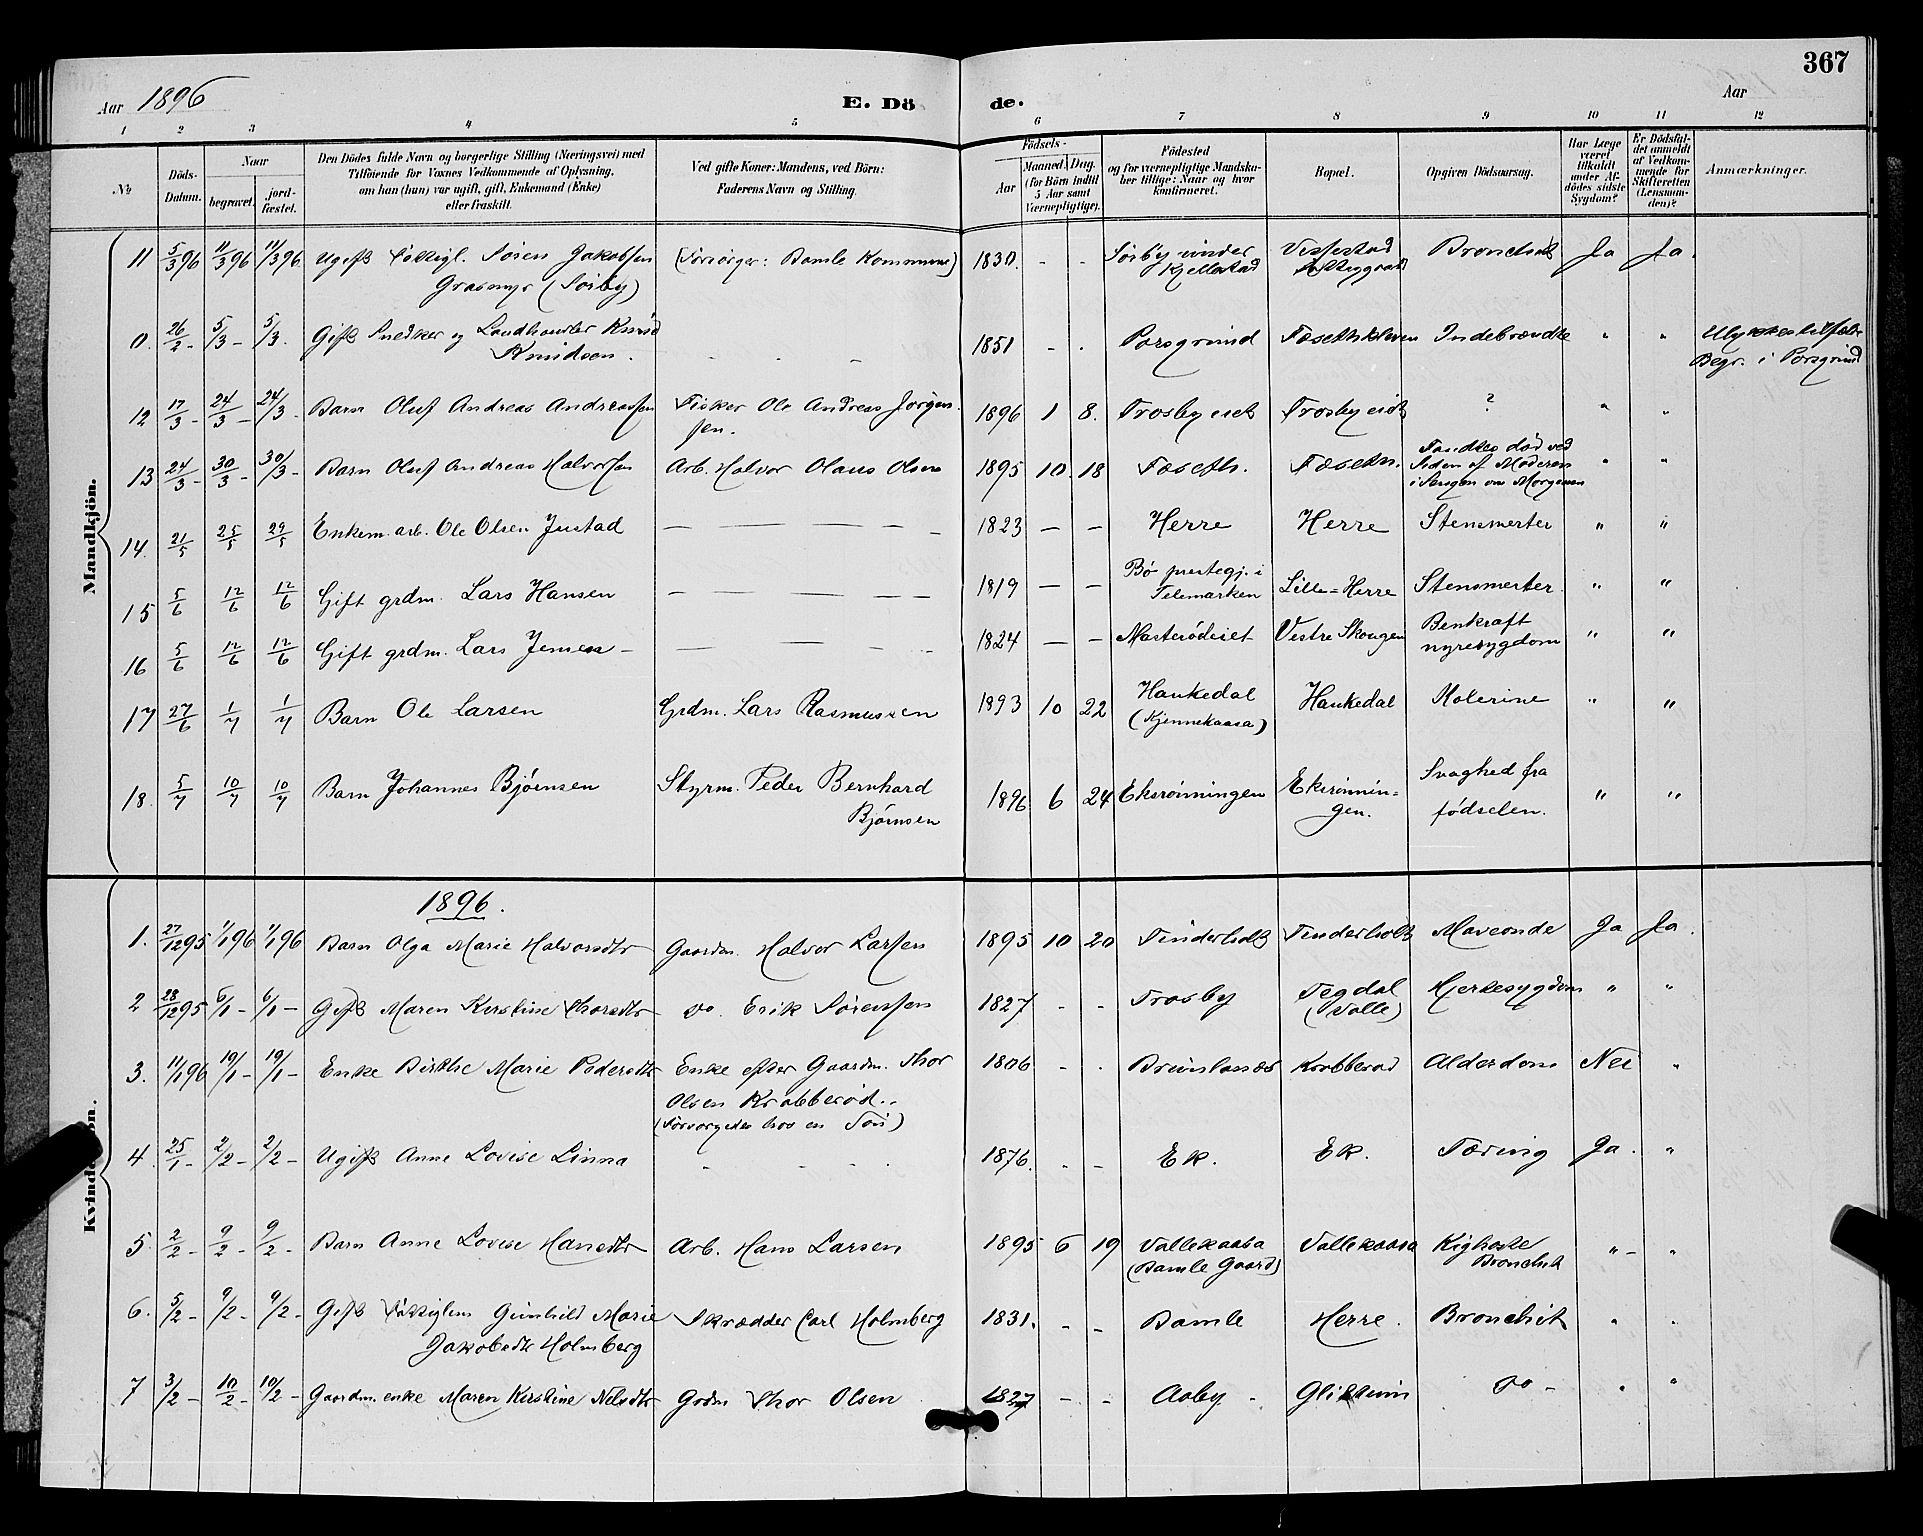 367
Aar 1896 E. Döde. Aar
1 2 3 4 5 6 7 8 9 10 11 12
No
Döds-Datum.
Naar
begravet.
jord-fæstet.
Den Dödes fulde Navn og borgerlige Stilling (Næringsvei) med
Tilföiende for Voxnes Vedkommende af Oplysning,
om han (hun) var ugift, gift, Enkemand (Enke)
eller fraskilt.
Ved gifte Koner: Mandens, ved Börn:
Faderens Navn og Stilling.
Födsels-
Aar
Maaned. Dag.
(for Börn indtil
5 Aar samt
Værnepligtige).
Födested
og for værnepligtige Mandska-
ber tillige: Naar og hvor
konfirmeret.
Bopæl.
Opgiven Dödsaarsag.
Har Læge
været
tilkaldt
under Af-
dödes sidste
Sygdom?
Er Dödsfal-
det anmeldt
af Vedkom-
mende for
Skifteretten
(Lensman-
den)?
Anmærkninger.
Mandkjön.
11 5/3 96 11/3 96 11/3 96 Ugift Fattigl. Søren Jakobsen (Forsørger: Bamle Kommune) 1830. - - Sørby under Vissestad Bronchit Ja Ja.
Grasmyr (Sørby) Kjellestad Fattiggaard
0. 26/2 - 5/3 - 5/3. Gift Snedker og Landhandler Knud - - - 1851 - - Porsgrund Fæsethkleven Indebrændte " " Ulykkestilfælde
Knudsen. Begr. i Porsgrund
12 17/3 - 24/3 - 24/3 - Barn Oluf Andreas Andreassen Fisker Ole Andreas Jørgen- 1896 1 8. Trosby eid Trosby eid ? " "
sen.
13 24/3 - 30/3 - 30/3 - Barn Oluf Andreas Halvorsen Arb. Halvor Olaus Olsen 1895 10. 18 Fæseth. Fæseth. Fandtes død ved " "
Siden af Moderen
i Sengen om Morgenen
14. 21/5 25/5 29/5 Enkem. arb. Ole Olsen Justad — — — — - 1823 — — Herre Herre Stensmerter " "
15 5/6 12/6 12/6 Gift grdm. Lars Hansen — — — — — 1819 — — Bø prestegj. i Lille-Herre Stensmerter. " "
Telemarken
16 5/6 12/6 12/6 Gift grdm. Lars Jensen - — — - - 1824 — — Vestre Skougen Benkraft " "
nyresygdom
17 27/6 1/7 1/7 Barn Ole Larsen Grdm. Lars Rasmussen 1893 10 22 Haukedal Haukedal Kolerine " "
(Kjennekaasa)
18. 5/7 10/7 10/7 Barn Johannes Bjørnsen Styrm. Peder Bernhard 1896 6 24 Eksrønningen Eksrønnin= Svaghed fra " "
Bjørnsen gen. fødselen.
Kvindekjön.
1896.
1. 27/12 95 1/1 96 1/1 96 Barn Olga Marie Halvorsdtr Gaardm. Halvor Larsen 1895 10 20 Tinderholt Tinderholt Maveonde Ja Ja.
2 28/12 95 6/1 - 6/1 - Gift Maren Kirstine Thorsdtr do. Erik Sørensen 1827 - - Trosby Tegdal Hjertesygdom " "
(Valle)
3. 11/1 96 19/1 - 19/1 - Enke Birthe Marie Pedersdtr Enke efter Gaardm. Thor 1806 - - Brunlanæs Krabberød Alderdom Nei "
Olsen Krabberød..
(Forsørgedes hos en Søn)
4. 25/1 - 2/2 - 2/2 - Ugift Anne Lovise Linna - - - - 1876. - - Ek. Ek. Tæring Ja. "
5. 2/2 - 9/2 - 9/2 - Barn Anne Lovise Hansdtr Arb. Hans Larsen 1895 6 19 Vallekaasa Vallekaasa Kighoste " - "
(Bamle Gaard) Bronchit
6. 5/2 - 9/2 - 9/2 - Gift Fattiglem Gunhild Marie Skrædder Carl Holmberg 1831. - - Bamle Herre. Bronchit " "
Jakobsdtr Holmberg
7 3/2 - 10/2 - 10/2 - Gaardm. enke Maren Kirstine Nilsdtr Grdm Thor Olsen 1827 - - Aaby - do - " "